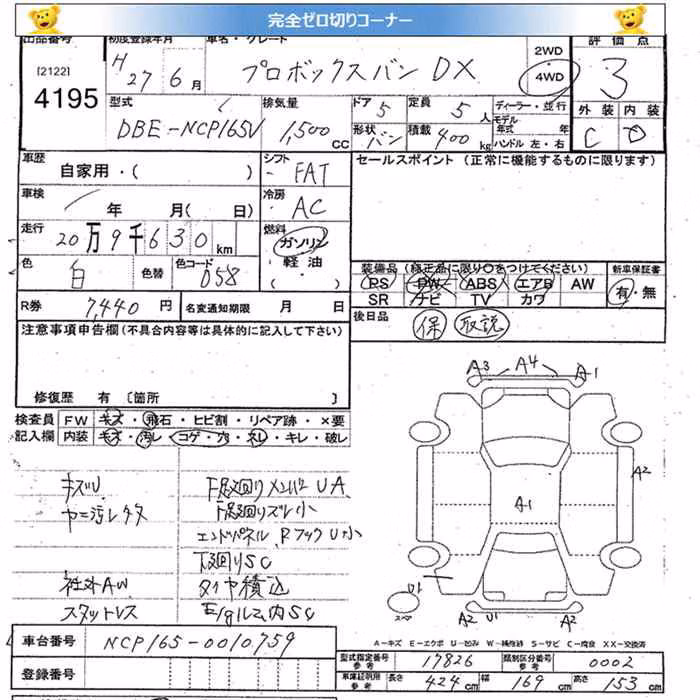 完全ゼロ切りコーナー
出品番号 初度登録年月 車名・グレード 2WD 評価点
[2122] H 27 6月 プロボックスバン DX 4WD 3
4195 型式 排気量 ドア 5 定員 5人 ディーラー・並行 外装 内装
DBE-NCP165V 1,500 CC 形状 バン 積載 400 kg モデル年式 年 ハンドル 左・右 C D
車歴 自家用・( ) シフト FAT セールスポイント (正常に機能するものに限ります)
車検 年 月( 日) 冷房 AC
走行 20万9千630 km 燃料 ガソリン
軽油
( )
色 白 色替 色コード 058
装備品(純正品に限り○をつけてください) 新車保証書
PS PW ABS エアB AW 有・無
SR ナビ TV カワ
R券 7,440円 名変通知期限 月 日 後日品 保 取説
注意事項申告欄(不具合内容等は具体的に記入して下さい)
修復歴 有 〔箇所 〕
検査員 FW キズ・飛石・ヒビ割・リペア跡・×要
記入欄 内装 キズ・汚レ・コゲ・穴・ネレ・キレ・破レ
A3 A4 A1
A2
A1
キズU 下廻りメンバー UA
ヤニ汚レタタ 下廻りズレ小
エンドパネル、Rフック U小
下廻りSC
社外AW タイヤ積込
スタットレス E/gルーム内SC
U1 スペア A2 U1 A2
車台番号 NCP165-0010759
A-キズ E-エクボ U-凹み W-補修跡 S-サビ C-腐食 XX-交換済
登録番号 型式指定番号 参考 17826 類別区分番号 参考 0002
車庫証明用 参考 長さ 424 cm 幅 169 cm 高さ 153 cm